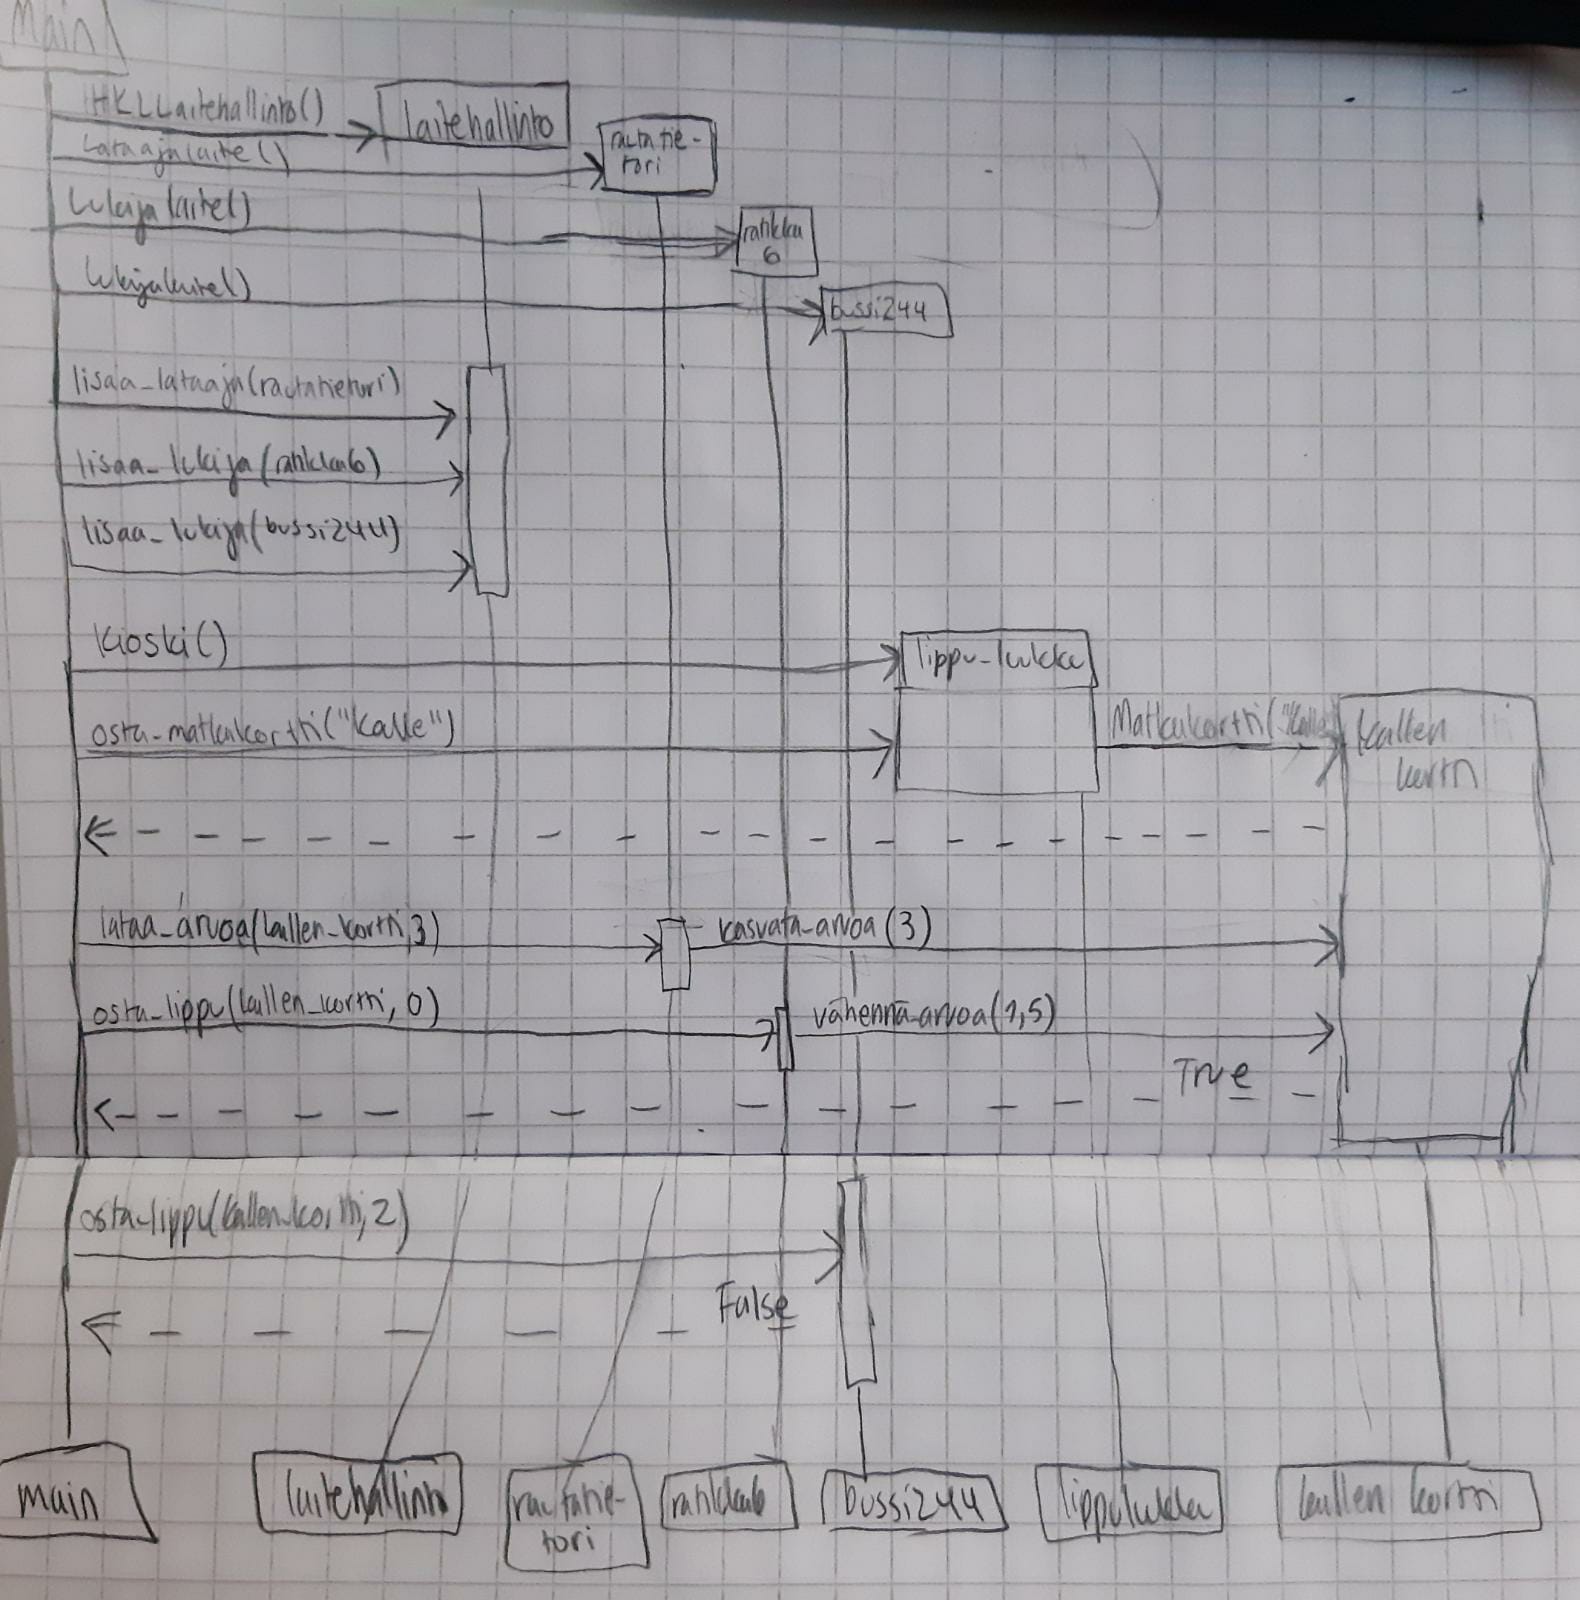 Main
HKLLaitehallinto()
laitehallinto
Lataajalaite()
rautatie-
tori
Lukijalaite()
ratikka
6
Lukijalaite()
bussi244
lisaa_lataaja(rautatietori)
lisaa_lukija(ratikka6)
lisaa_lukija(bussi244)
Kioski()
lippu-luukku
osta-matkakortti("Kalle")
Matkakortti("Kalle
kallen
kortti
lataa_arvoa(kallen_kortti,3)
kasvata_arvoa(3)
osta_lippu(kallen_kortti, 0)
vähennä_arvoa(1,5)
True
osta-lippu(kallen_kortti, 2)
False
main
laitehallinto
rautatie-
tori
ratikka6
bussi244
lippuluukku
kallen kortti